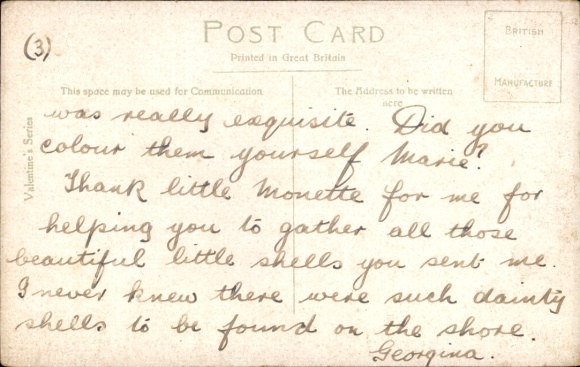 (3)
POST CARD
Printed in Great Britain
BRITISH
MANUFACTURE
This space may be used for Communication
The Address to be written
here
Valentine's Series
was really exquisite. Did you
colour them yourself Marie?
Thank little Monette for me for
helping you to gather all those
beautiful little shells you sent me.
I never knew there were such dainty
shells to be found on the shore.
Georgina.